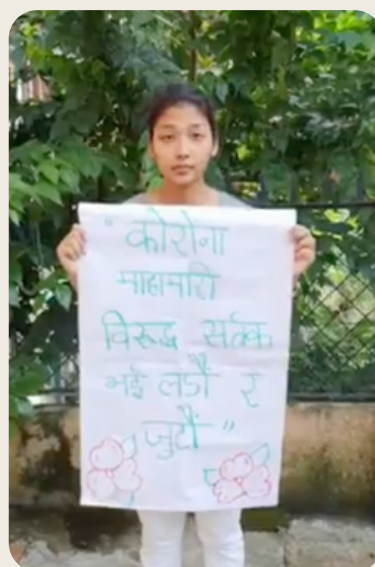 "कोरोना
माहामारी
विरूद्ध सर्तक
भई लडौं र
जुटौं"